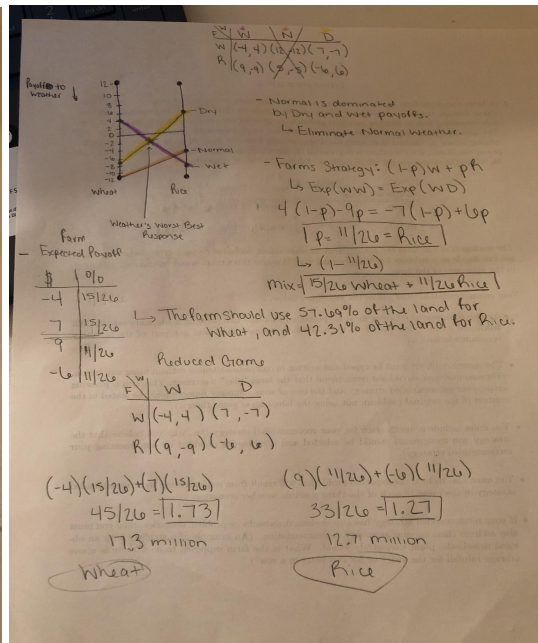 F W W N D
W (-4, 4) (12, -12) (7, -7)
R (9, -9) (5, -5) (-6, 6)
Payoffs to
Weather ↓
12
10
8
6
4
2
0
-2
-4
-6
-8
-10
-12
Dry
Normal
Wet
Wheat Rice
Weather's Worst Best
Response
- Normal is dominated
by Dry and Wet payoffs.
↳ Eliminate Normal Weather.
- Farms Strategy: (1-p)W + pR
↳ Exp(WW) = Exp(WD)
4(1-p)-9p = -7(1-p)+6p
p = 11/26 = Rice
↳ (1-11/26)
mix = 15/26 Wheat + 11/26 Rice
Farm
- Expected Payoff
$ %
-4 15/26
7 15/26
9 11/26
-6 11/26
↳ The farm should use 57.69% of the land for
Wheat, and 42.31% of the land for Rice.
Reduced Game
F W W D
W (-4, 4) (7, -7)
R (9, -9) (-6, 6)
(-4)(15/26)+(7)(15/26)
45/26 = 1.73
17.3 million
Wheat
(9)(11/26)+(-6)(11/26)
33/26 = 1.27
12.7 million
Rice